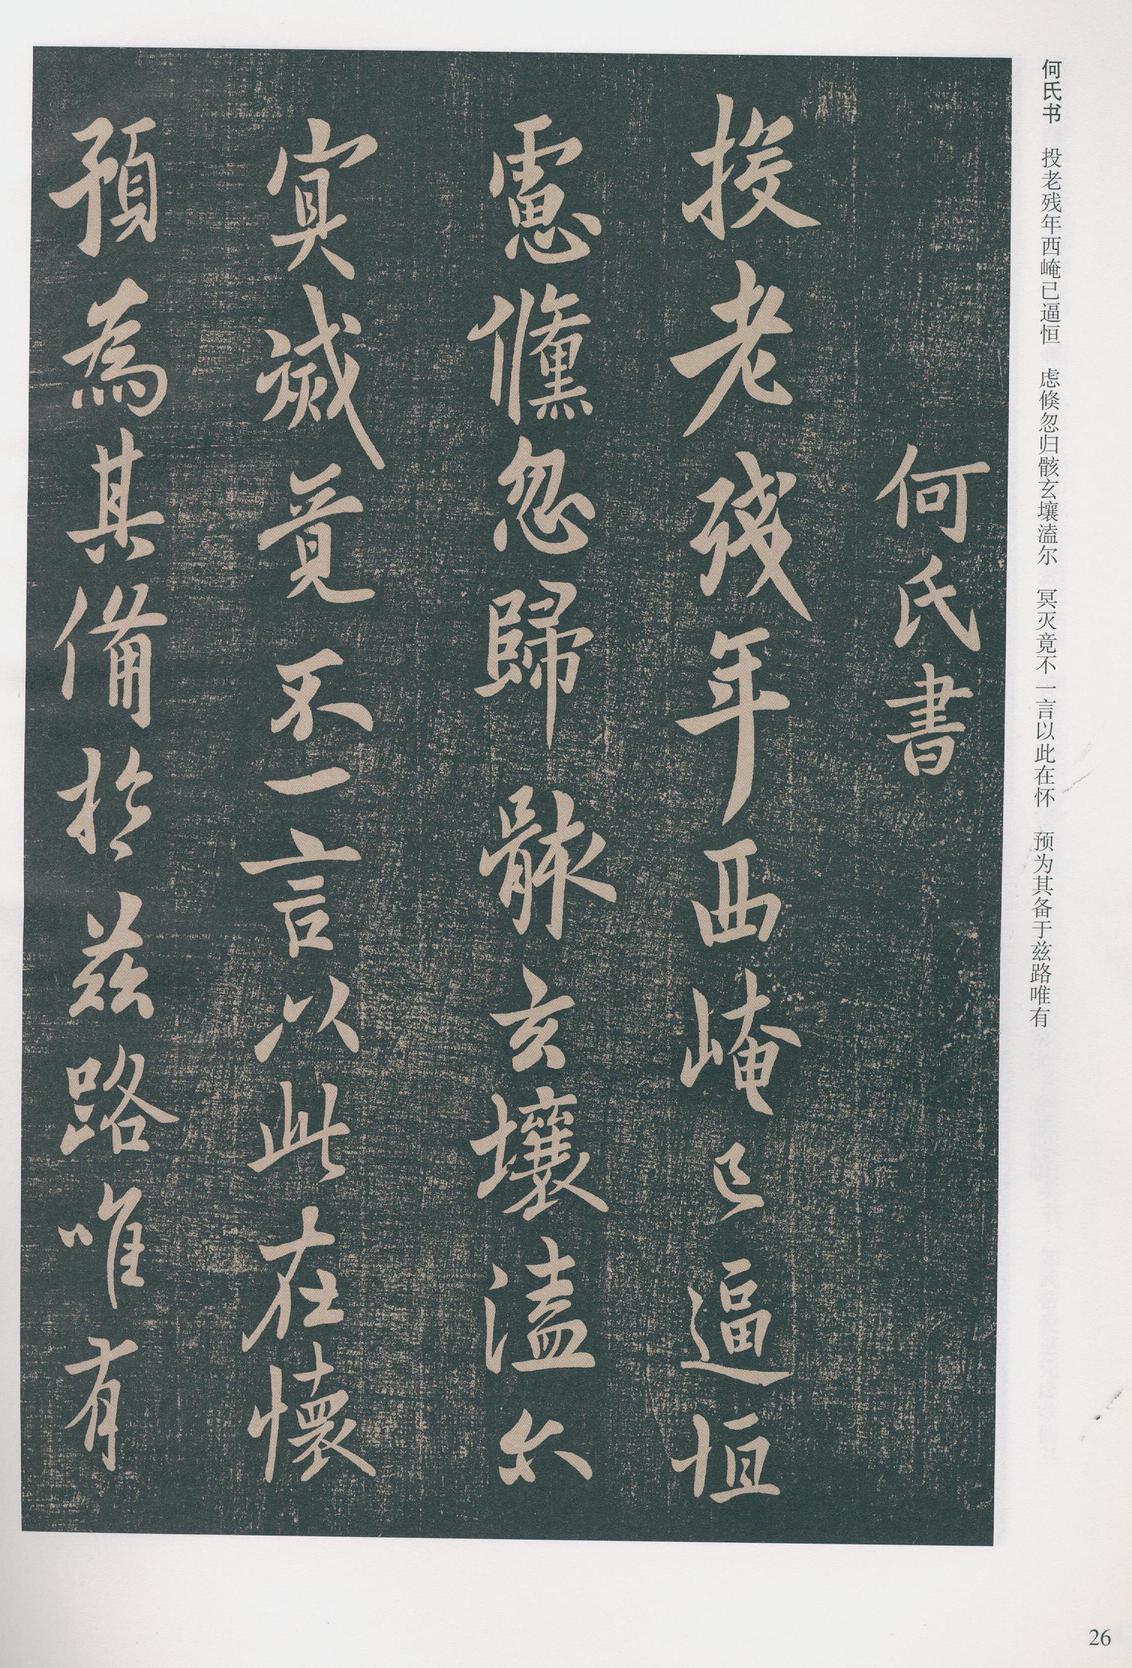 何氏书　投老残年西崦已逼恒　虑倏忽归骸玄壤溘尔　冥灭竟不一言以此在怀　预为其备于兹路唯有
何氏書
投老殘年西崦已逼恒
慮儵忽歸骸玄壤溘尒
冥滅竟不一言以此在懷
預為其備於兹路唯有
26